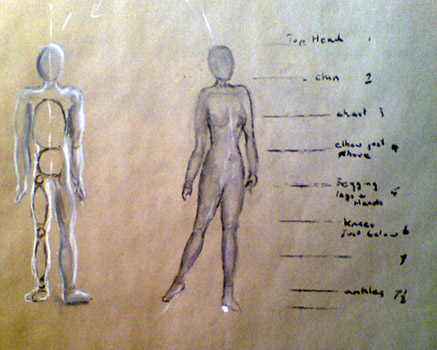 Top Head 1
chin 2
chest 3
elbow just
Above 4
Begging
legs &
Hands 5
Knees
Just below 6
7
ankles 7½